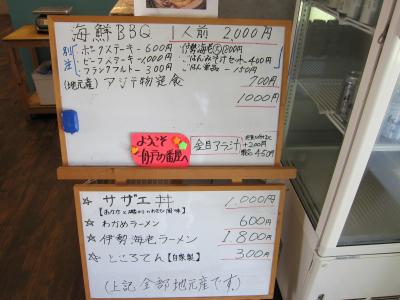 海鮮BBQ 1人前 2,000円
別注
ポークステーキ 600円 伊勢海老 1,200円
ビーフステーキ 1,000円 ごはんみそ汁セット 400円
フランクフルト 300円 ごはん単品 150円
(地元産)アジ干物定食 700円
1000円
ようこそ
番屋へ
金目アラ汁 +200円
単品 450円
☆ サザエ丼 1,000円
☆ わかめラーメン 600円
☆ 伊勢海老ラーメン 1,800円
☆ ところてん【自家製】 300円
(上記全部地元産です)